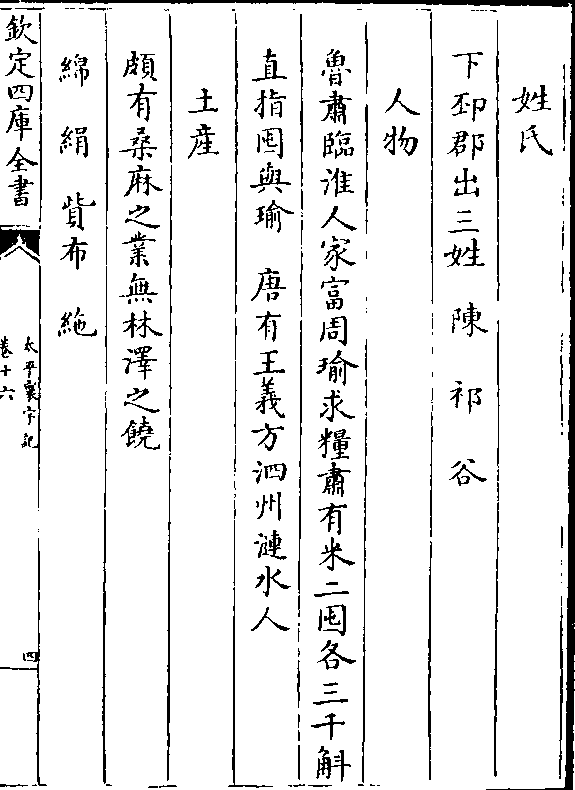 姓氏
下邳郡出三姓 陳 祁 谷
人物
魯肅臨淮人家富周瑜求糧肅有米二囤各三千斛
直指囤與瑜 唐有王義方泗州漣水人
土産
頗有桑麻之業無林澤之饒
綿 絹 貲布 絁
欽定四庫全書
太平寰宇記
卷十六
四